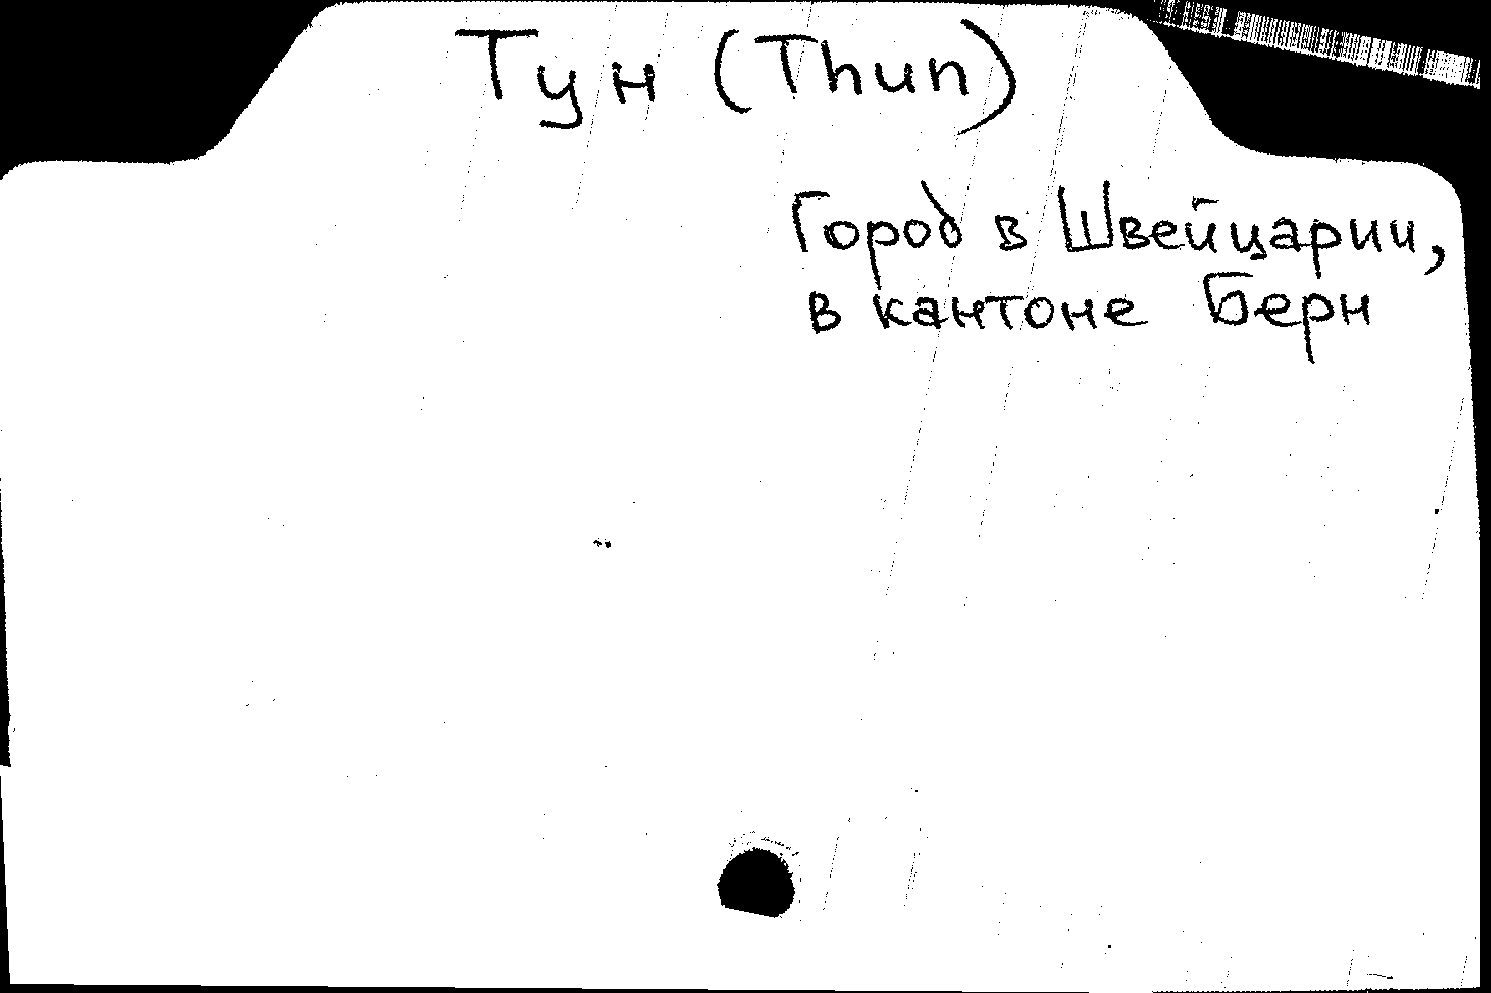 Тун (Thun)
Город в Швейцарии,
в кантоне Берн